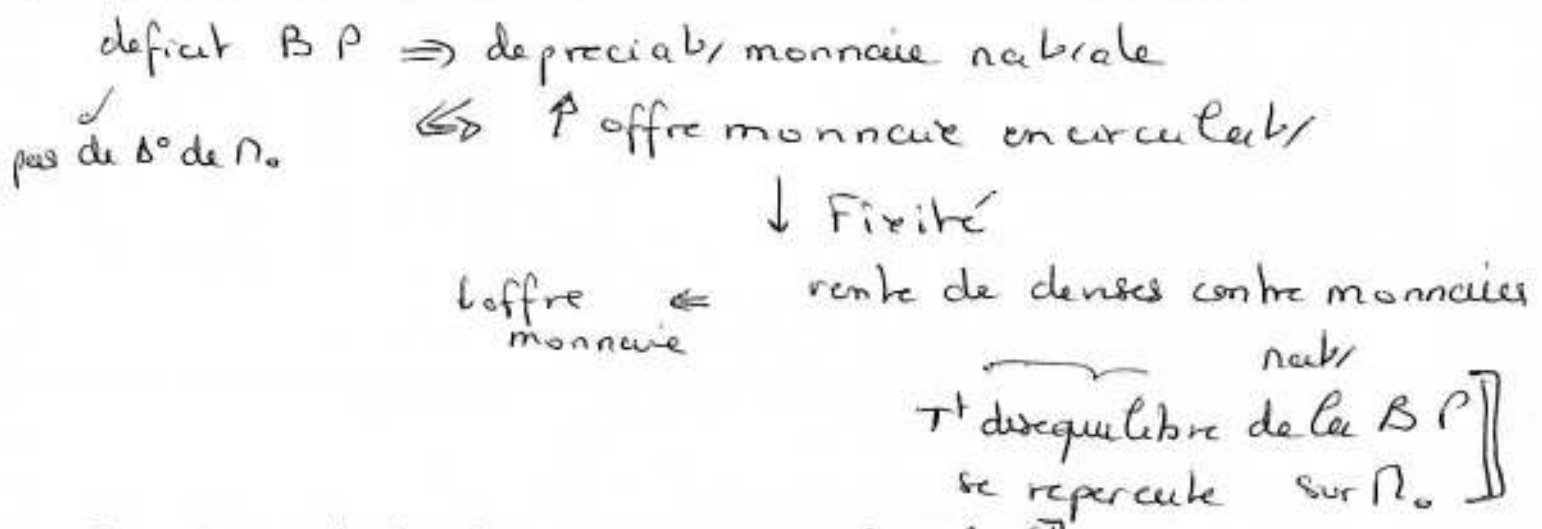 deficit BP ⇒ depreciat/ monnaie natrale
pas de Δ° de M₀ ⇔ ↑ offre monnaie en circulat/
↓ Fixité
↓ offre ⇐ vente de devises contre monnaies
monnaie nat/
Tt desequilibre de la BP
se repercute sur M₀